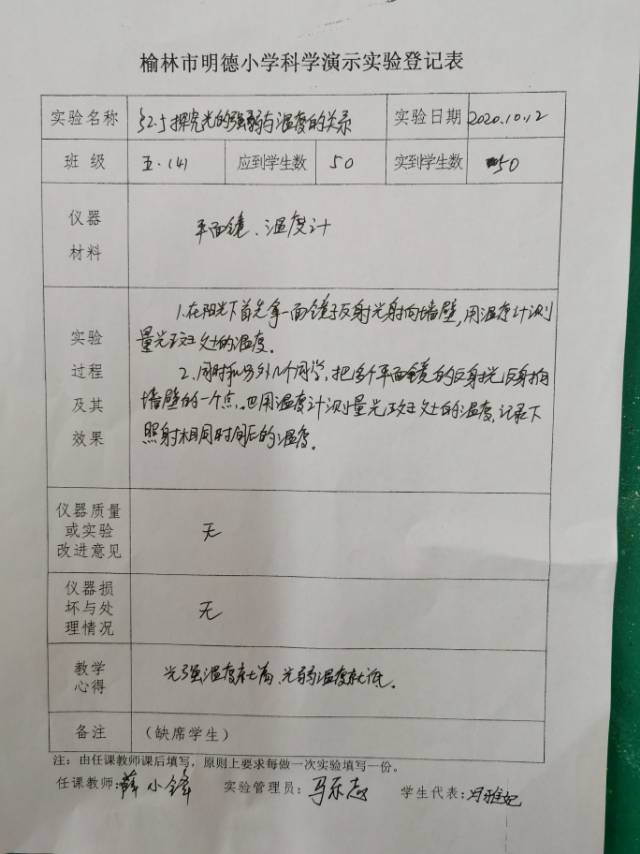 榆林市明德小学科学演示实验登记表
实验名称 §2.5探究光的强弱与温度的关系 实验日期 2020.10.12
班 级 五.(4) 应到学生数 50 实到学生数 50
仪器
材料
平面镜、温度计
实验
过程
及其
效果
1.在阳光下首先拿一面镜子反射光射向墙壁,用温度计测
量光斑处的温度。
2.同时和另外几个同学,把多个平面镜的反射光反射向
墙壁的一个点。也用温度计测量光斑处的温度,记录下
照射相同时间后的温度。
仪器质量
或实验
改进意见
无
仪器损
坏与处
理情况
无
教学
心得
光强温度就高,光弱温度就低。
备注 (缺席学生)
注:由任课教师课后填写,原则上要求每做一次实验填写一份。
任课教师:薛小锋 实验管理员:马乐志 学生代表:冯雅妃